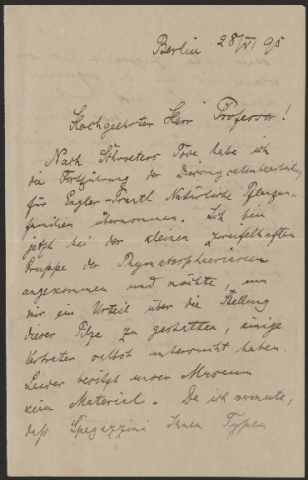 Berlin 28/VI 95
Hochgeehrter Herr Professor!
Nach Schroeters Tode habe ich
die Fortführung der
für Engler-Prantl Natürliche Pflanzen-
familien übernommen. Ich bin
jetzt bei der kleinen zweifelhaften
Gruppe der
angekommen und möchte, um
mir ein Urteil über die Stellung
dieser Pilze zu gestatten, einige
Vertreter selbst untersucht haben.
Leider besitzt unser Museum
kein Material. Da ich vermute,
daß Spegazzini Ihnen Typen